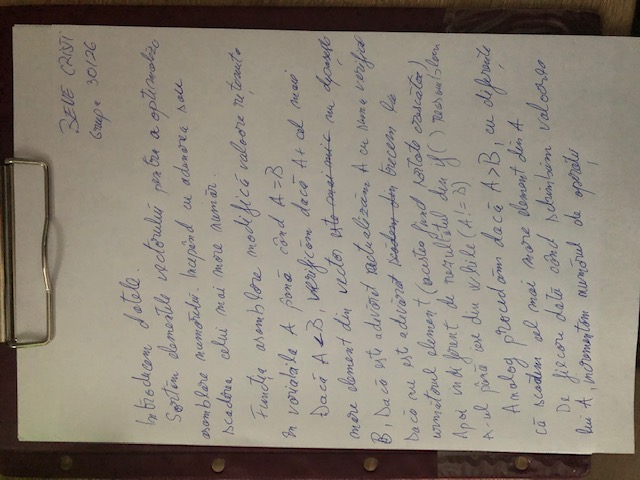 BEVE CRISTI
Grupa 30126
Introducem datele.
Sortăm elementele vectorului pentru a optimaliza
asamblare numărului. Începând cu adunarea sau
scăderea celui mai mare număr.
Funcția asamblare modifică valoare reținuta
în variabila A până când A=B
Dacă A<B, verificăm dacă A+ cel mai
mare element din vector este mai mic nu depășește
B, Dacă este adevărat actualizăm A cu suma verific
Dacă nu este adevărat scădem din trecem la
următorul element (acestea fiind sortate crescător)
Apoi indiferent de rezultatul din if() reasamblăm
A-ul până iese din while (A!=B)
Analog procedăm dacă A>B, cu diferența
că scadem cel mai mare element din A
De fiecare dată când schimbăm valoarea
lui A, incrementăm numărul de operații